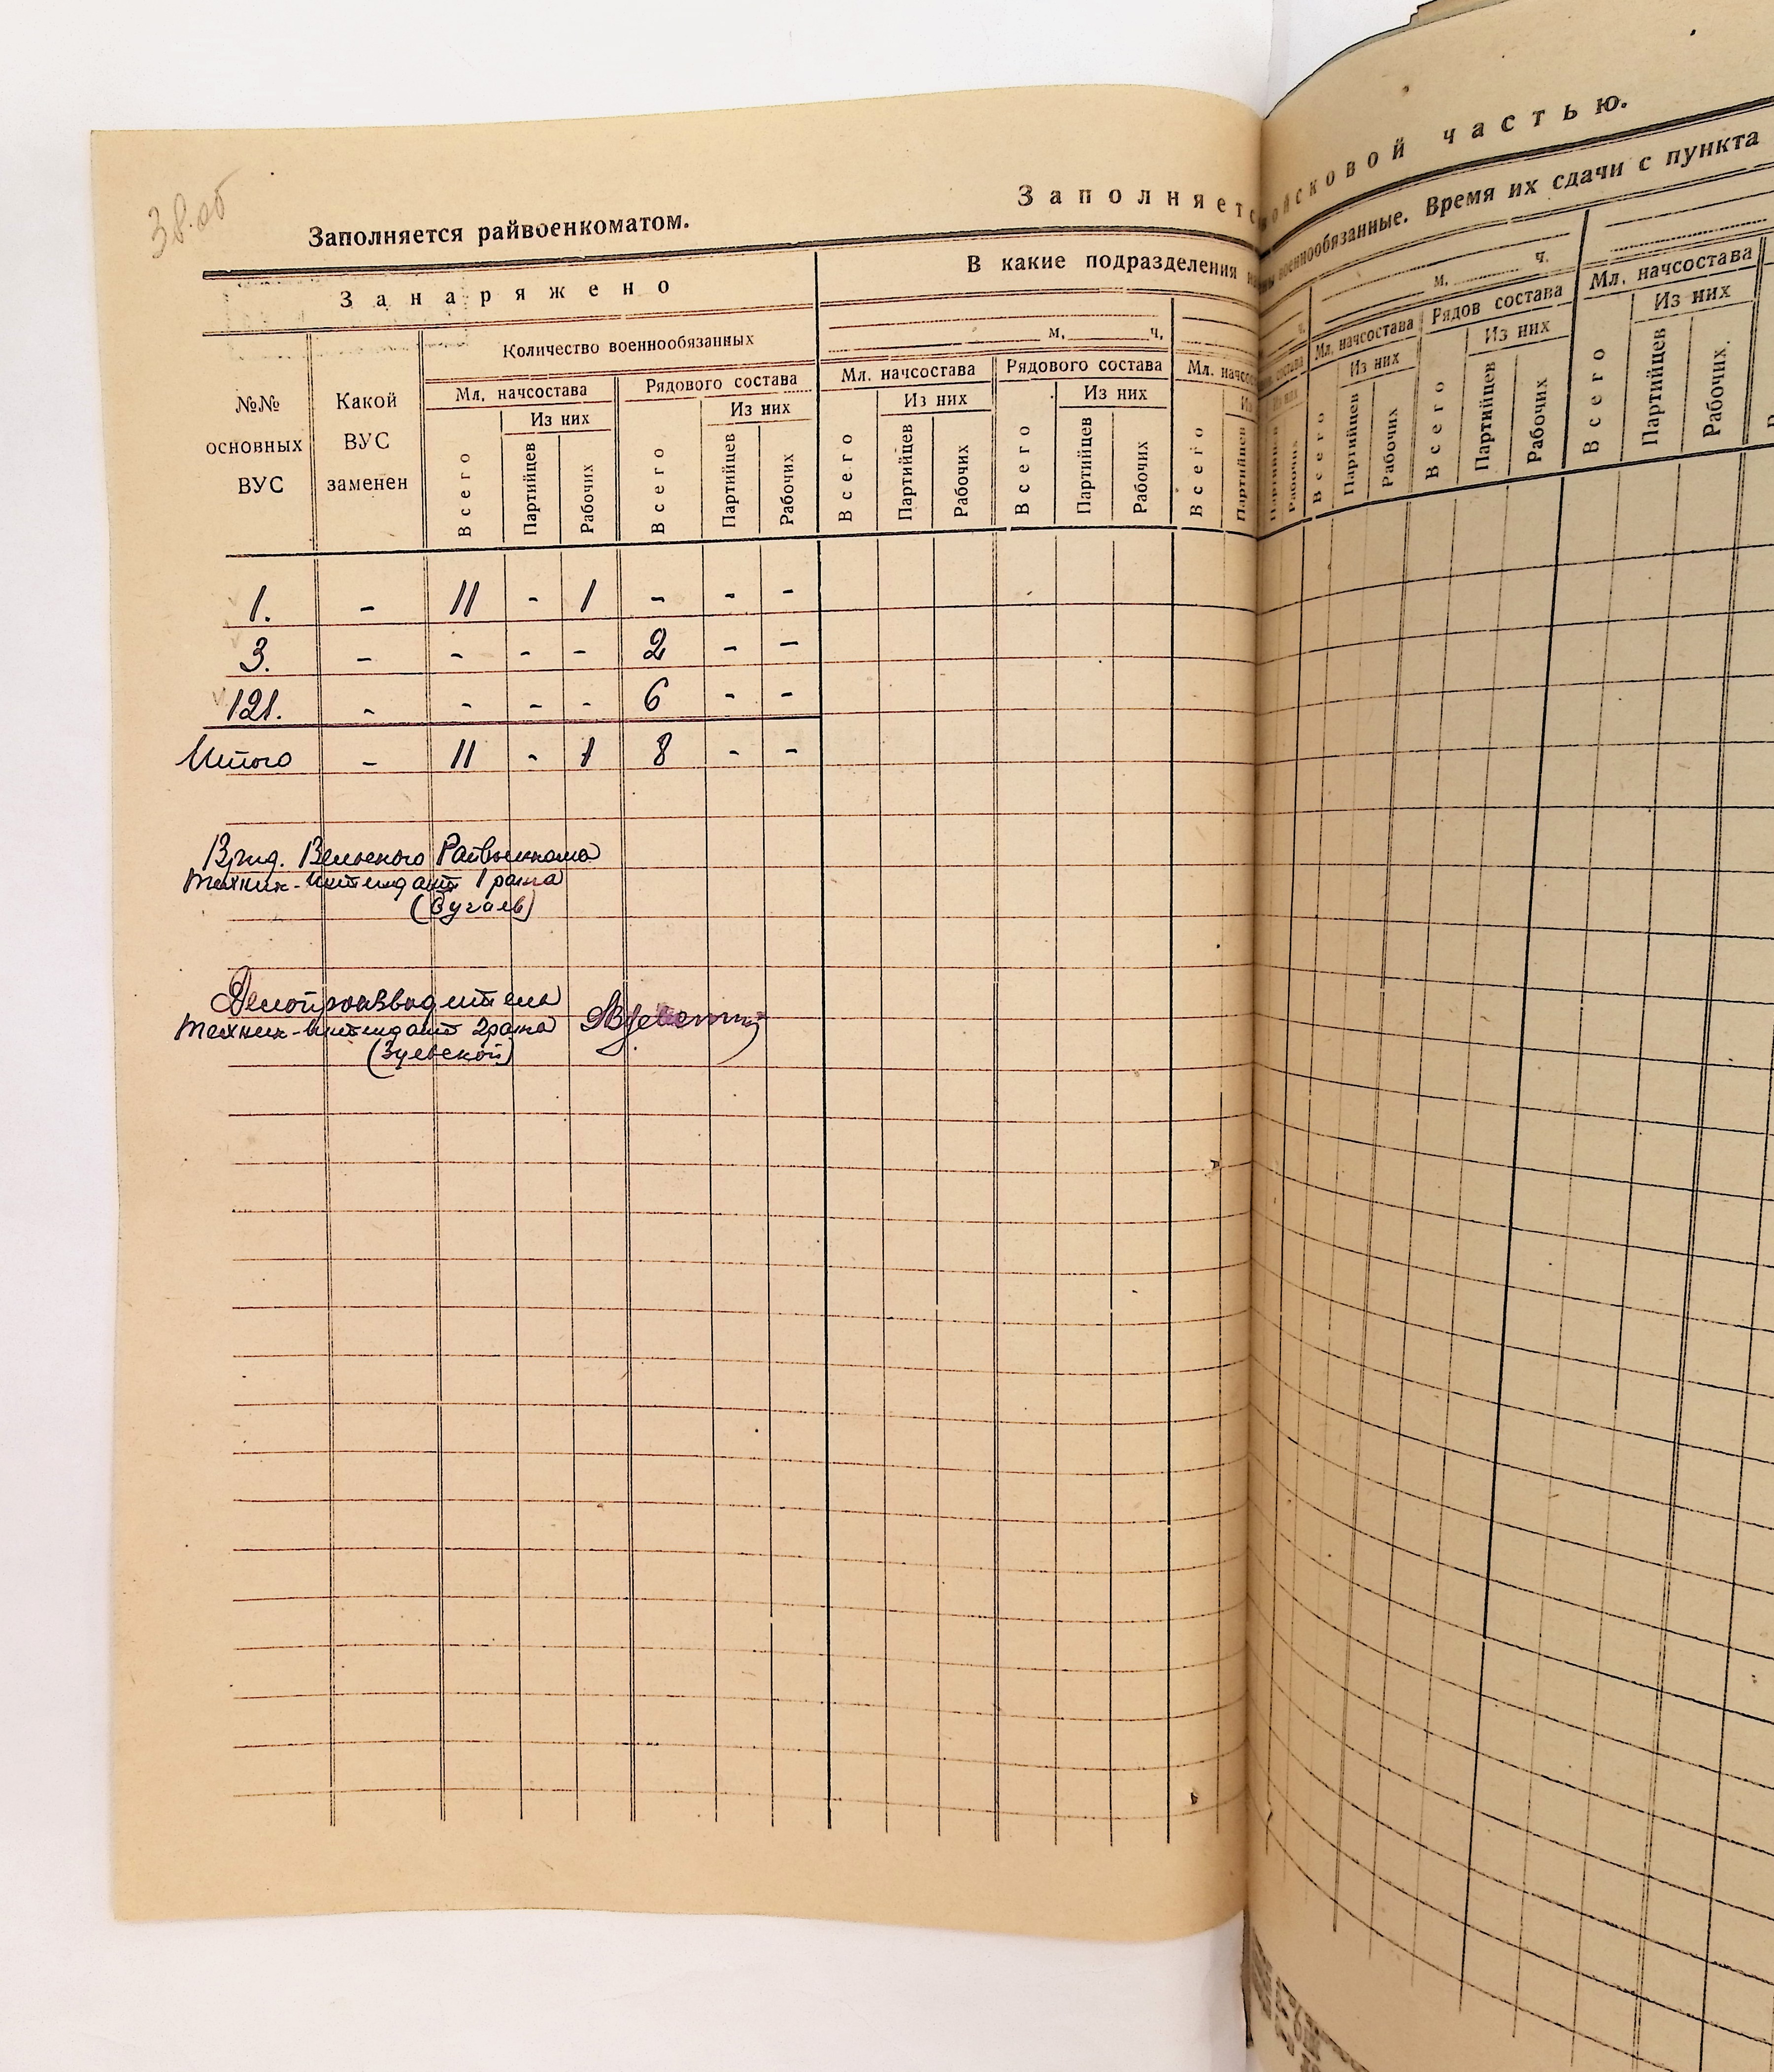 38.об
Заполняется райвоенкоматом.
Заполняетс
войсковой частью.
Занаряжено
В какие подразделения
военнообязанные. Время их сдачи с пункта
Количество военнообязанных
м. ч.
ч.
м. ч.
№№ основных ВУС
Какой ВУС заменен
Мл. начсостава
Рядового состава
Мл. начсостава
Рядового состава
Мл. начсос
состава
Мл. начсостава
Рядов состава
Мл. начсостава
Из них
Из них
Из них
Из них
Из них
Из них
Из них
Из них
Всего
Партийцев
Рабочих
Всего
Партийцев
Рабочих
Всего
Партийцев
Рабочих
Всего
Партийцев
Рабочих
Всего
Партийцев
Партийцев
Рабочих
Всего
Партийцев
Рабочих
Всего
Партийцев
Рабочих
Всего
Партийцев
Рабочих.
1. - 11 - 1 - - -
3. - - - - 2 - -
121. - - - - 6 - -
Итого - 11 - 1 8 - -
Врид. Вельского Райвоенкома
техник-интендант 1 ранга
(Бугаев)
Делопроизводитель
техник-интендант 2 ранга
(Зуевской)